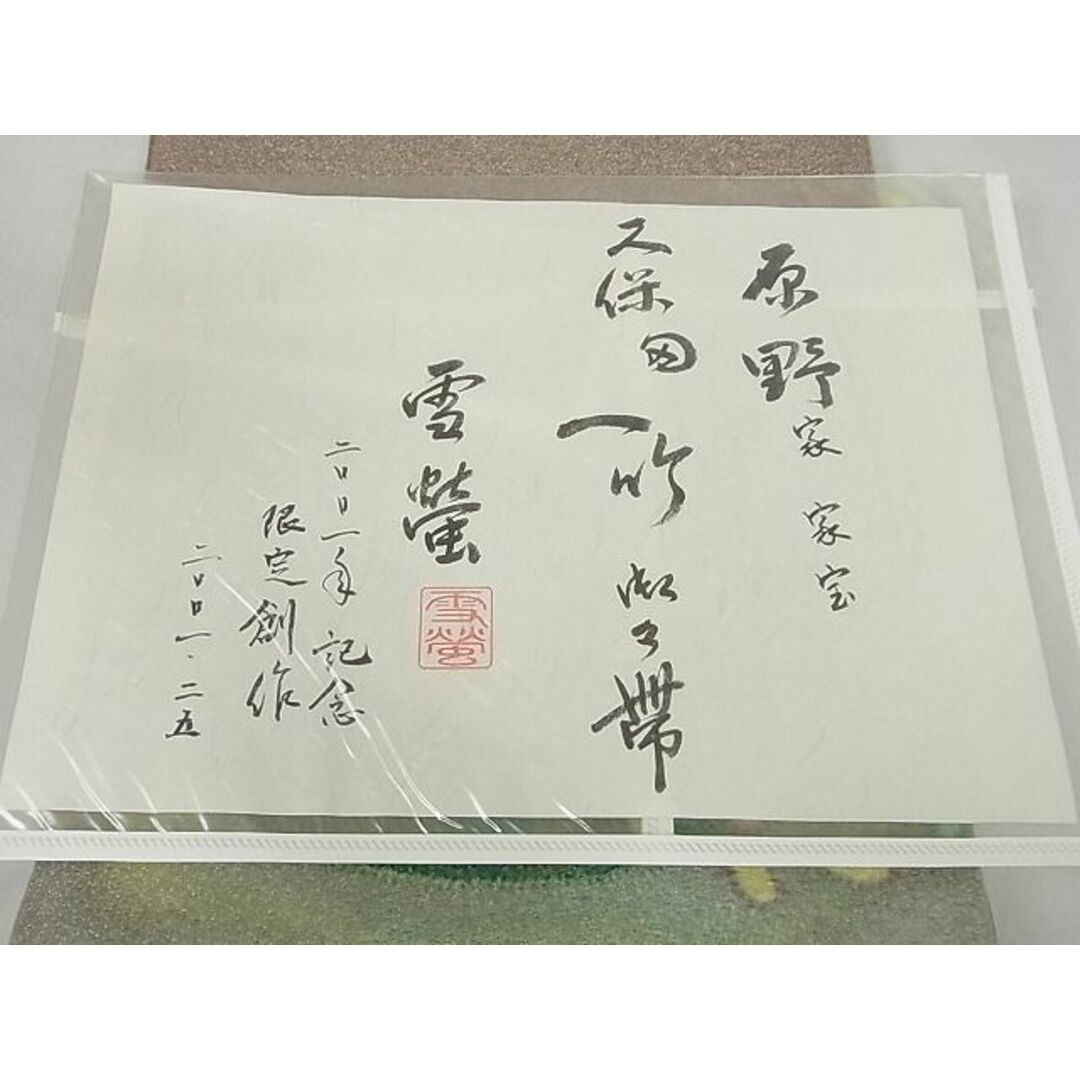 原野家 家宝
久保田 一竹 帯
雪螢
雪螢
二〇〇一年 記念
限定創作
二〇〇一.二五